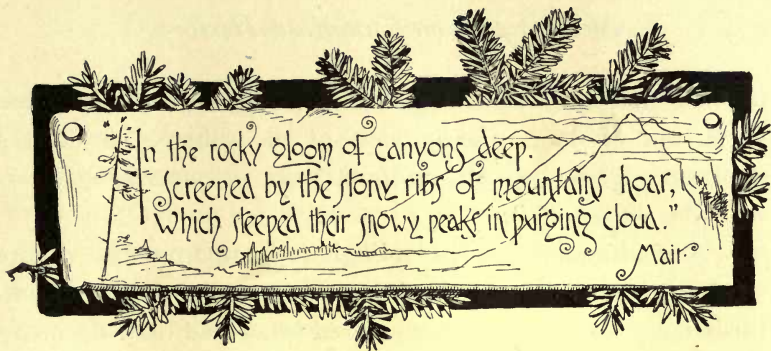 In the rocky gloom of canyons deep.
Screened by the stony ribs of mountains hoar,
Which steeped their snowy peaks in purging cloud."
Mair.